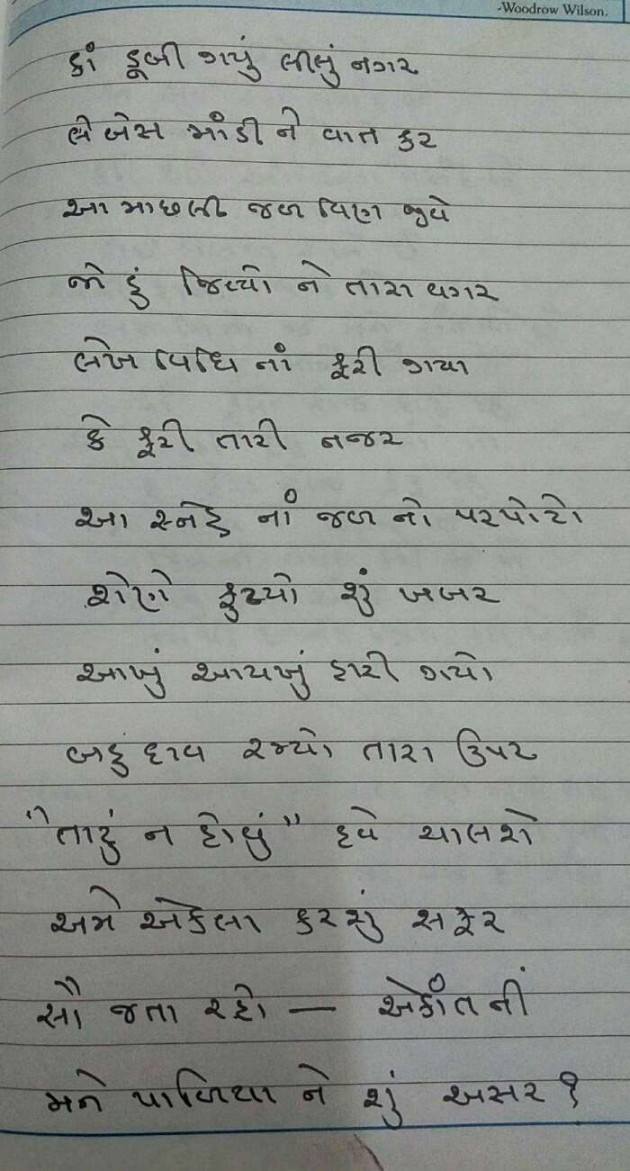 -Woodrow Wilson.
કાં ડૂબી ગયું લીલું નગર
લે બેસ માંડી ને વાત કર
આ માછલી જળ વિણ જીવે
જો હું જિવ્યો ને તારા વગર
લેખ વિધિ નાં ફરી ગયા
કે ફરી તારી નજર
આ સ્નેહ નાં જળ નો પરપોટો
શેણે ફુટ્યો શું ખબર
આખું આયખું હારી ગયો
બહુ દાવ રમ્યો તારા ઉપર
"તારું ન હોવું" હવે ચાલશે
અમે એકલા કરશું સફર
સૌ જતા રહો — એકાંત નીં
મને પાળિયા ને શું અસર ?